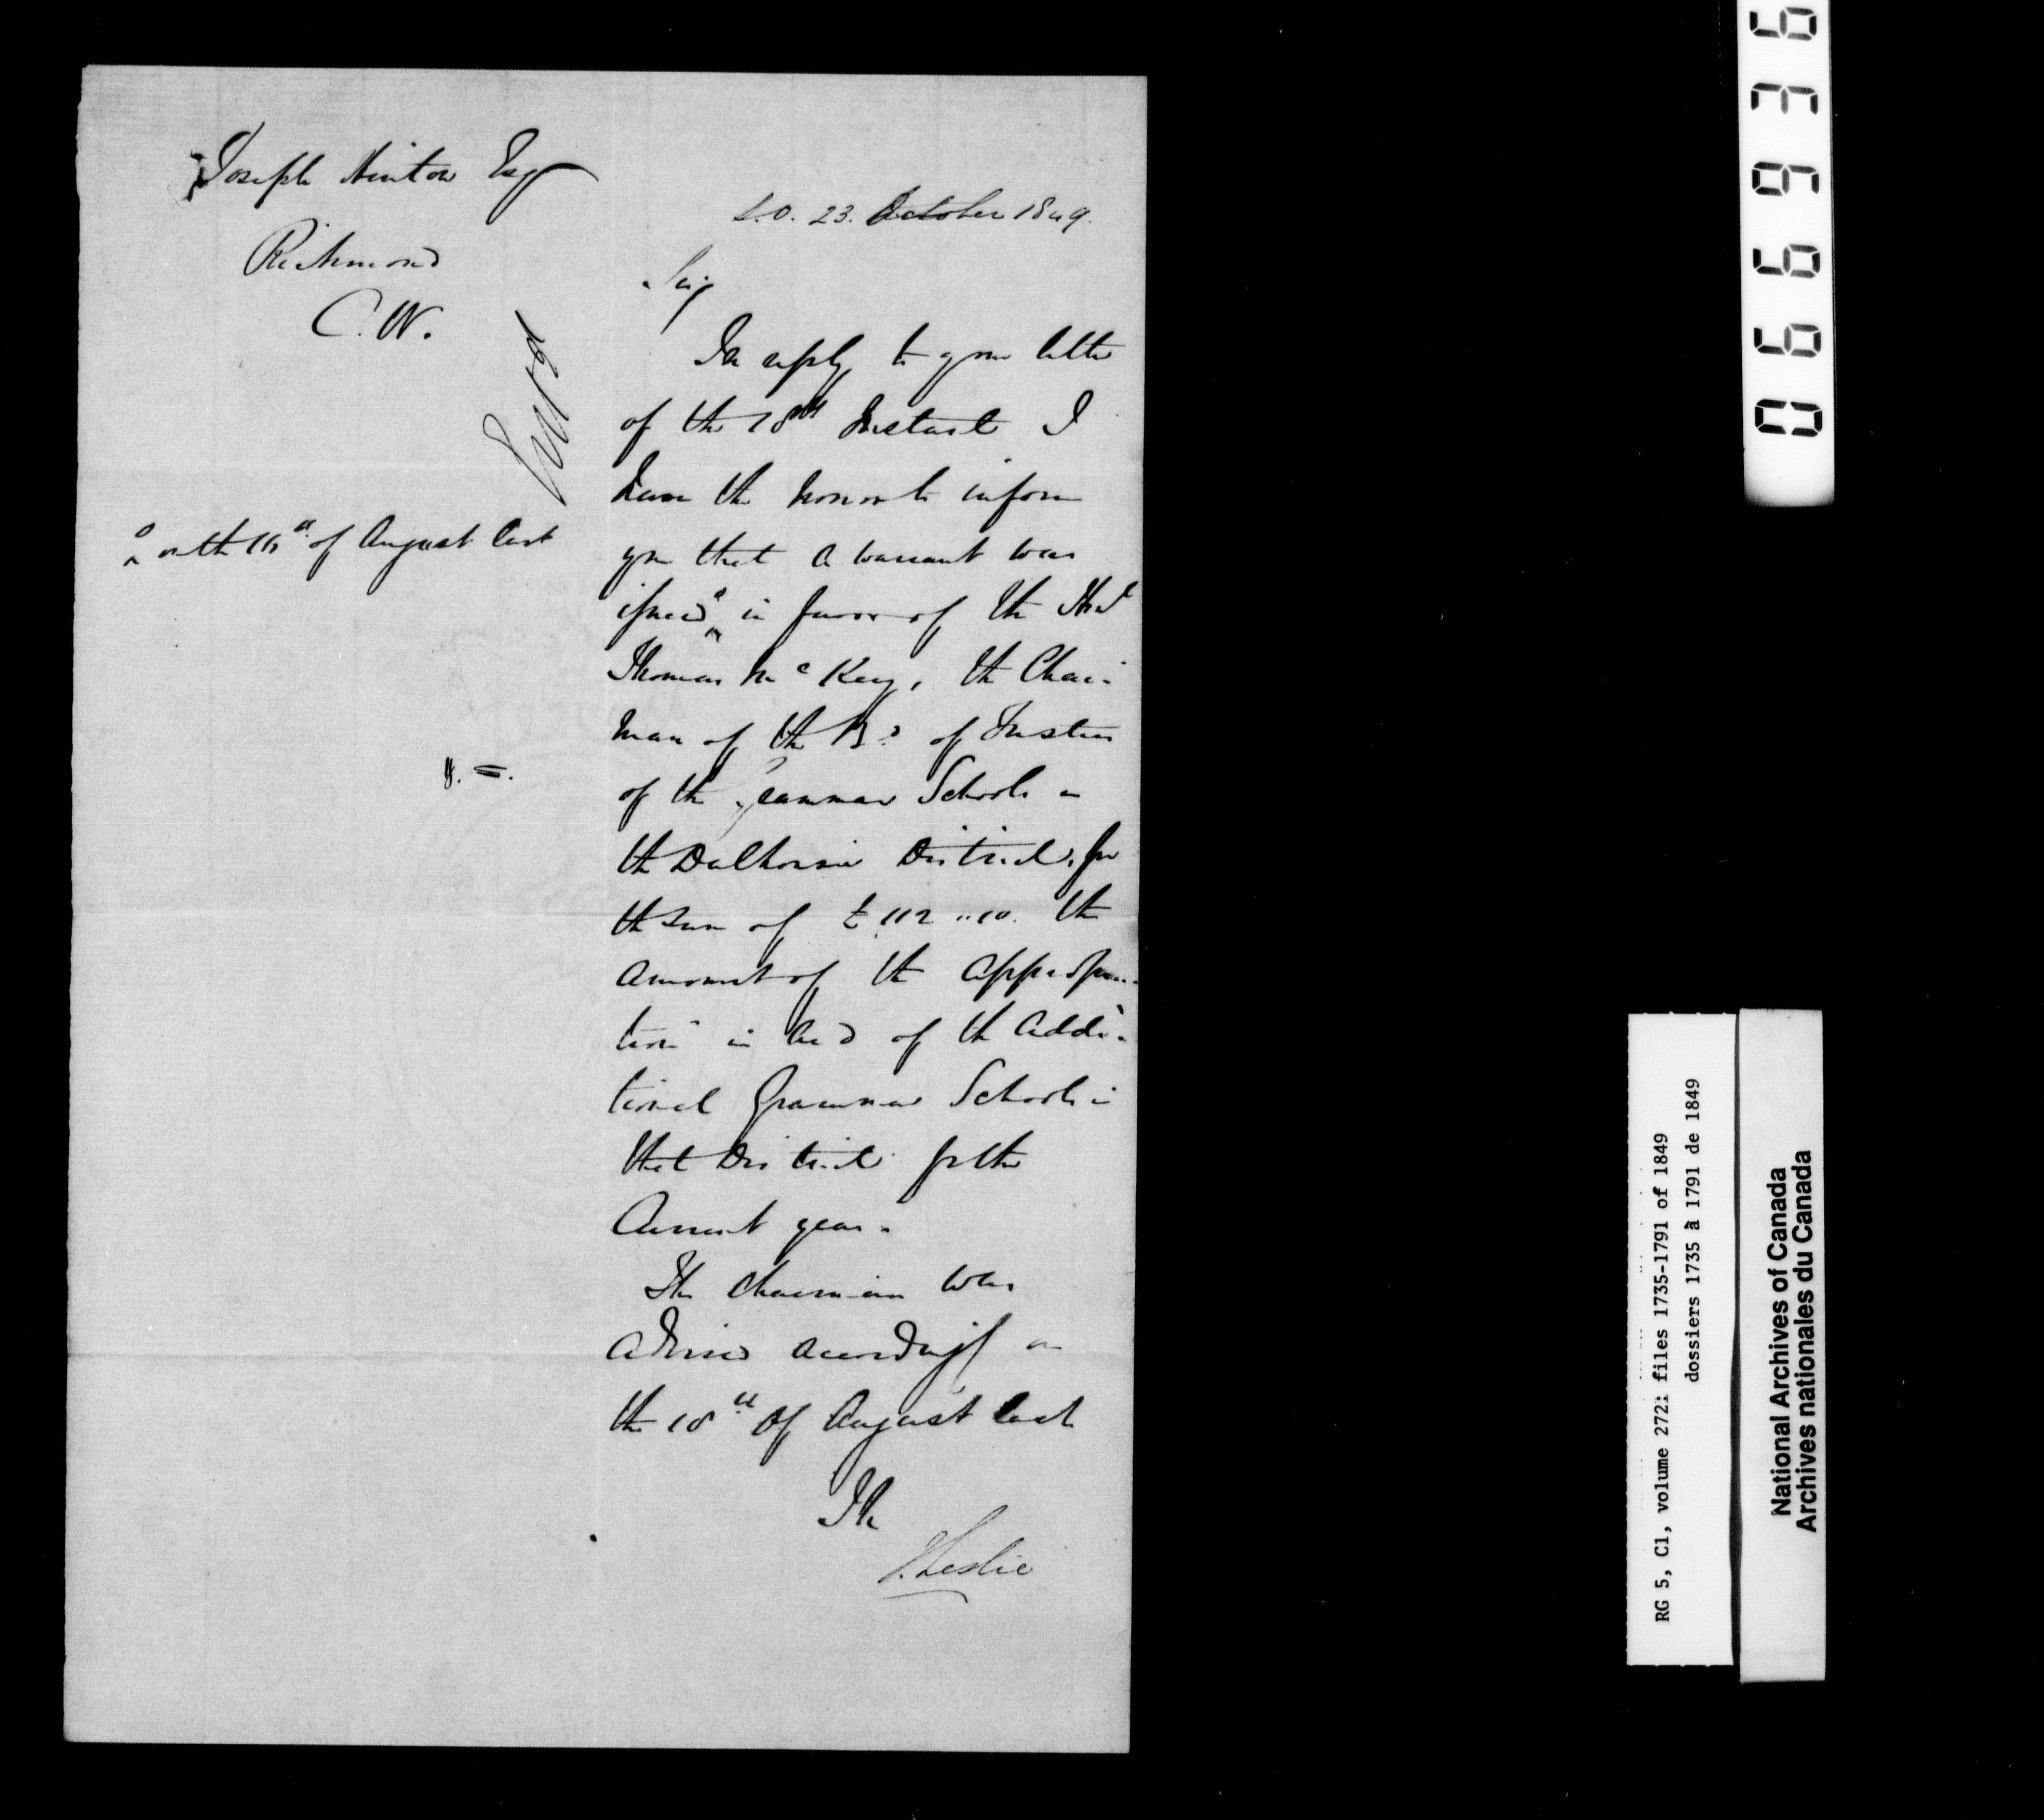 Joseph Hinton Esq
Richmond
C.W.
S.O. 23. October 1849.
Sir
In reply to your letter
of the 18th Instant I
have the honor to inform
you that a warrant was
issued in favor of the Honl
Thomas McKay, the Chair-
man of the Bd of Trustees
of the Grammar Schools in
the Dalhousie District, for
the sum of £112 ,, 10. the
amount of the appropria-
tion in aid of the addi-
tional Grammar Schools in
that District for the
Current year.
The Chairman was
advised accordingly on
the 18th of August last
on the 16th of August last
J. Leslie
066936
RG 5, C1, volume 272: files 1735-1791 of 1849
dossiers 1735 à 1791 de 1849
National Archives of Canada
Archives nationales du Canada